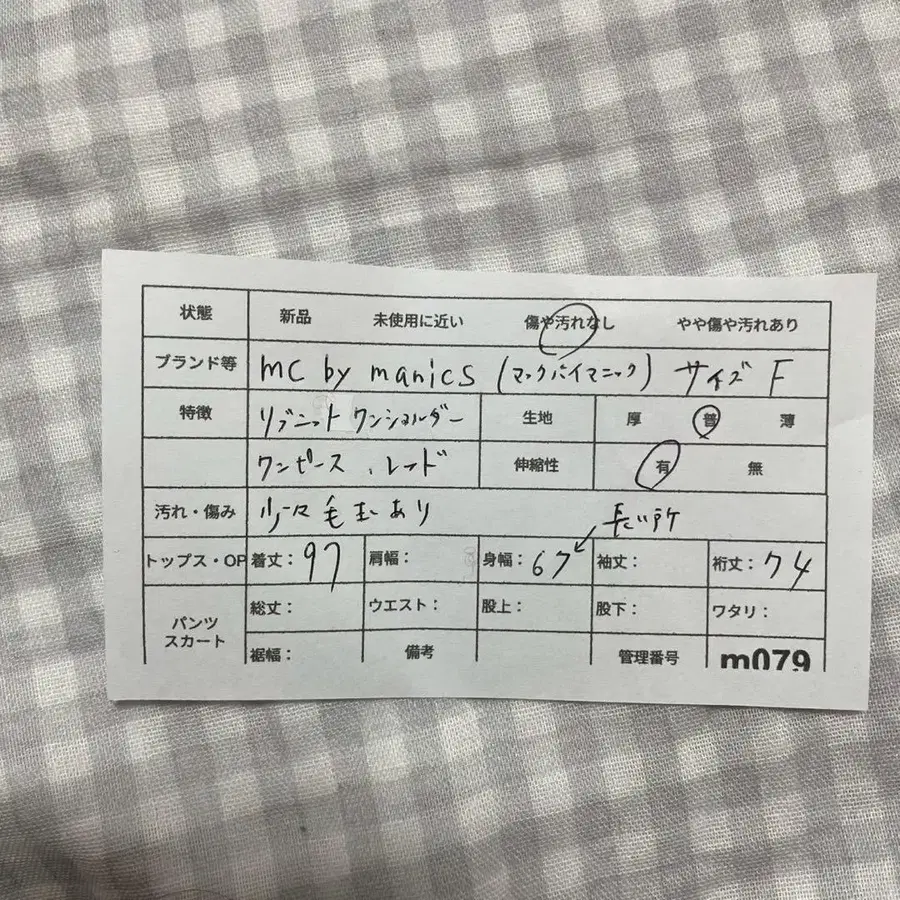 状態 新品 未使用に近い 傷や汚れなし やや傷や汚れあり
ブランド等 mc by manics (マックバイマニック) サイズ F
特徴 リブニット ワンショルダー 生地 厚 普 薄
ワンピース、レッド 伸縮性 有 無
汚れ・傷み 少々毛玉あり 長い所
トップス・OP 着丈: 97 肩幅: 身幅: 67 袖丈: 裄丈: 74
パンツ スカート 総丈: ウエスト: 股上: 股下: ワタリ:
裾幅: 備考 管理番号 m079